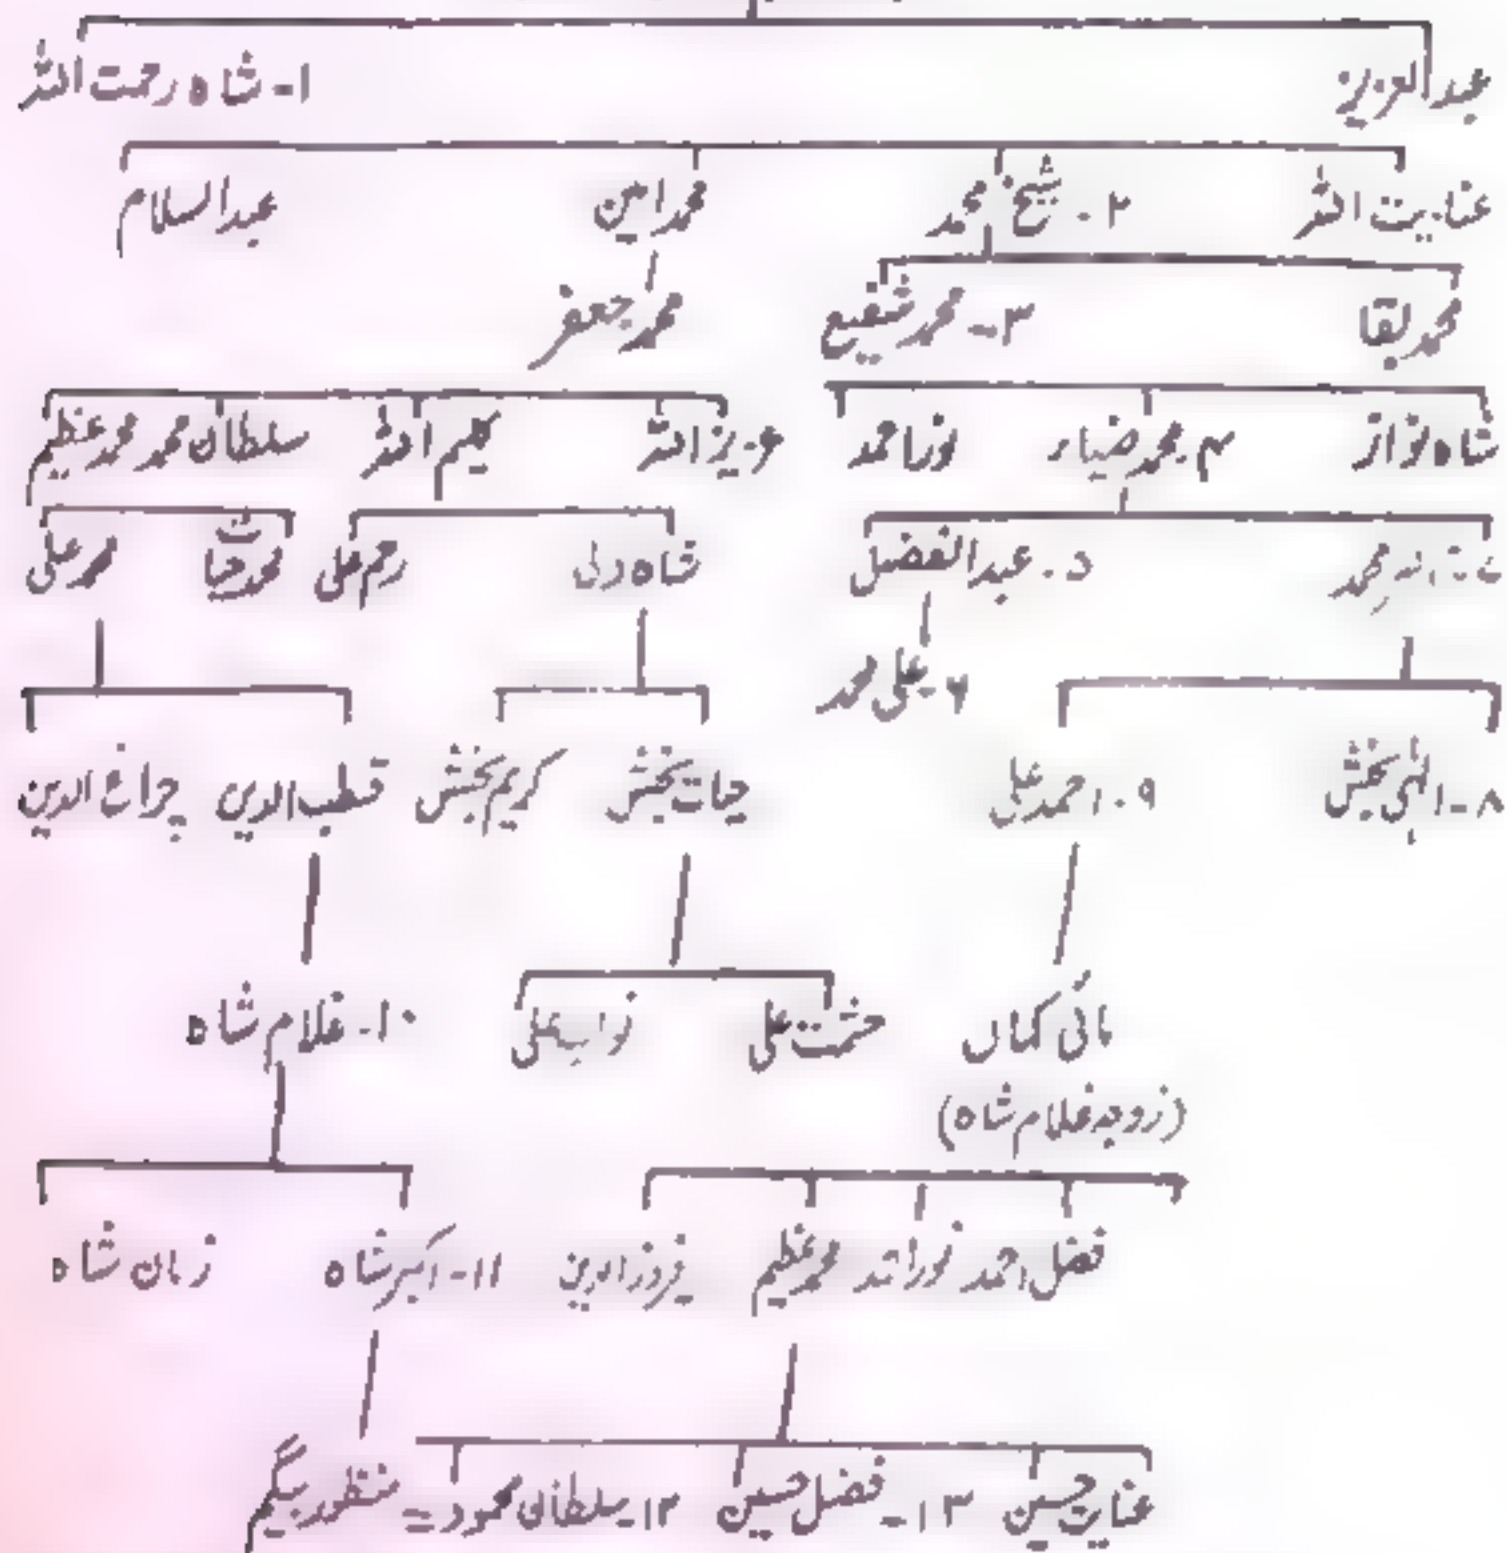 عبدالعزیز ۱- شاہ رحمت اللہ
عنایت اللہ ۲- شیخ محمد محمد امین عبدالسلام
محمد بقا ۳- محمد شفیع محمد جعفر
شاہ نواز ۴- محمد ضیاء نور احمد عزیز اللہ کلیم اللہ سلطان محمد محمد عظیم
محمد ۵- عبدالفضل شاہ ولی رحم علی محمد حیات محمد علی
۶- علی محمد
۸- الٰہی بخش ۹- احمد علی حیات بخش کریم بخش قطب الدین چراغ الدین
مائی کماں حشمت علی نواب علی ۱۰- غلام شاہ
(زوجہ غلام شاہ)
فضل احمد نور احمد محمد عظیم فیروز الدین ۱۱- اکبر شاہ زمان شاہ
عنایت حسین ۱۳- فضل حسین ۱۲- سلطان محمود = منظور بیگم